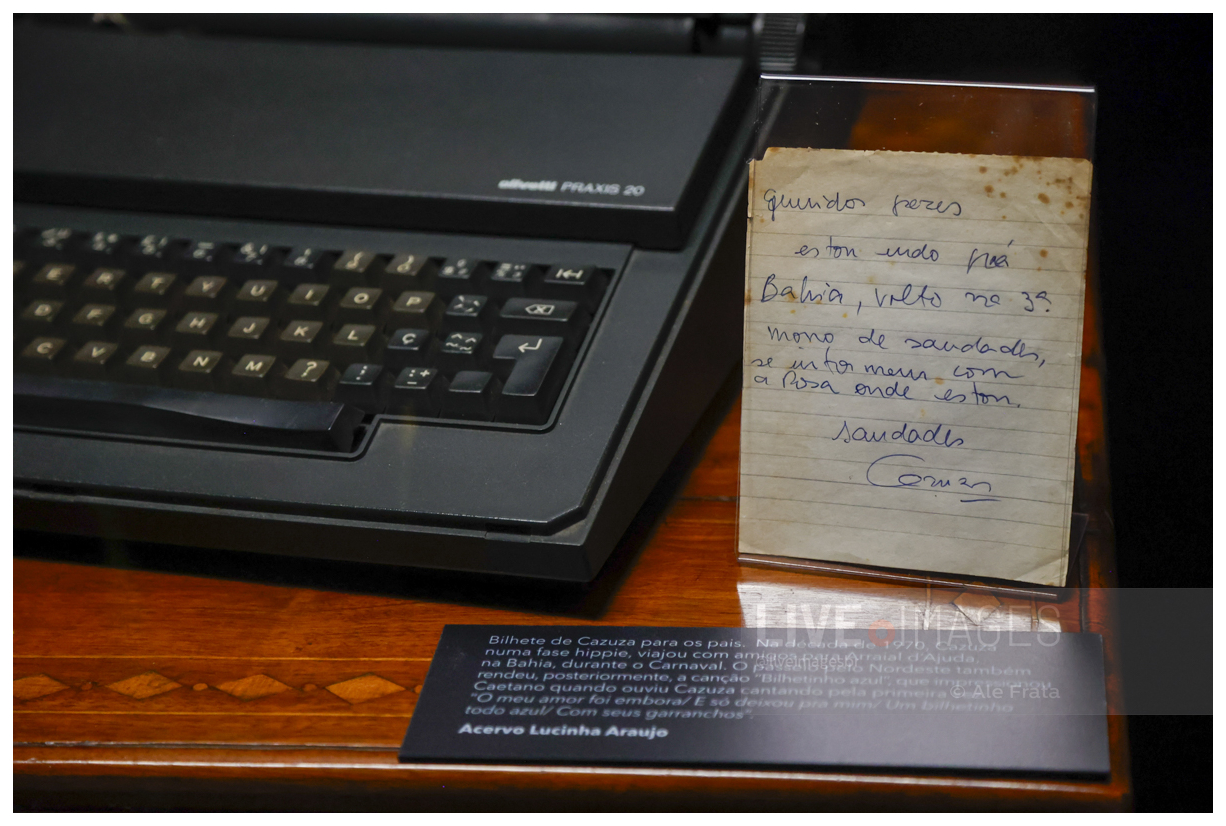 olivetti PRAXIS 20
E R T Y U I O P
D F G H J K L Ç
C V B N M ?
Queridos pais
estou indo prá
Bahia, volto na 3ª
morro de saudades,
se informem com
a Rosa onde estou.
saudades
Cazuza
LIVE IMAGES
Bilhete de Cazuza para os pais. Na década de 1970, Cazuza
numa fase hippie, viajou com amigos para Arraial d'Ajuda,
na Bahia, durante o Carnaval. O passeio pelo Nordeste também
rendeu, posteriormente, a canção "Bilhetinho azul", que impressionou
Caetano quando ouviu Cazuza cantando pela primeira
"O meu amor foi embora/ E só deixou pra mim/ Um bilhetinho
todo azul/ Com seus garranchos".
Acervo Lucinha Araujo
© Ale Frata